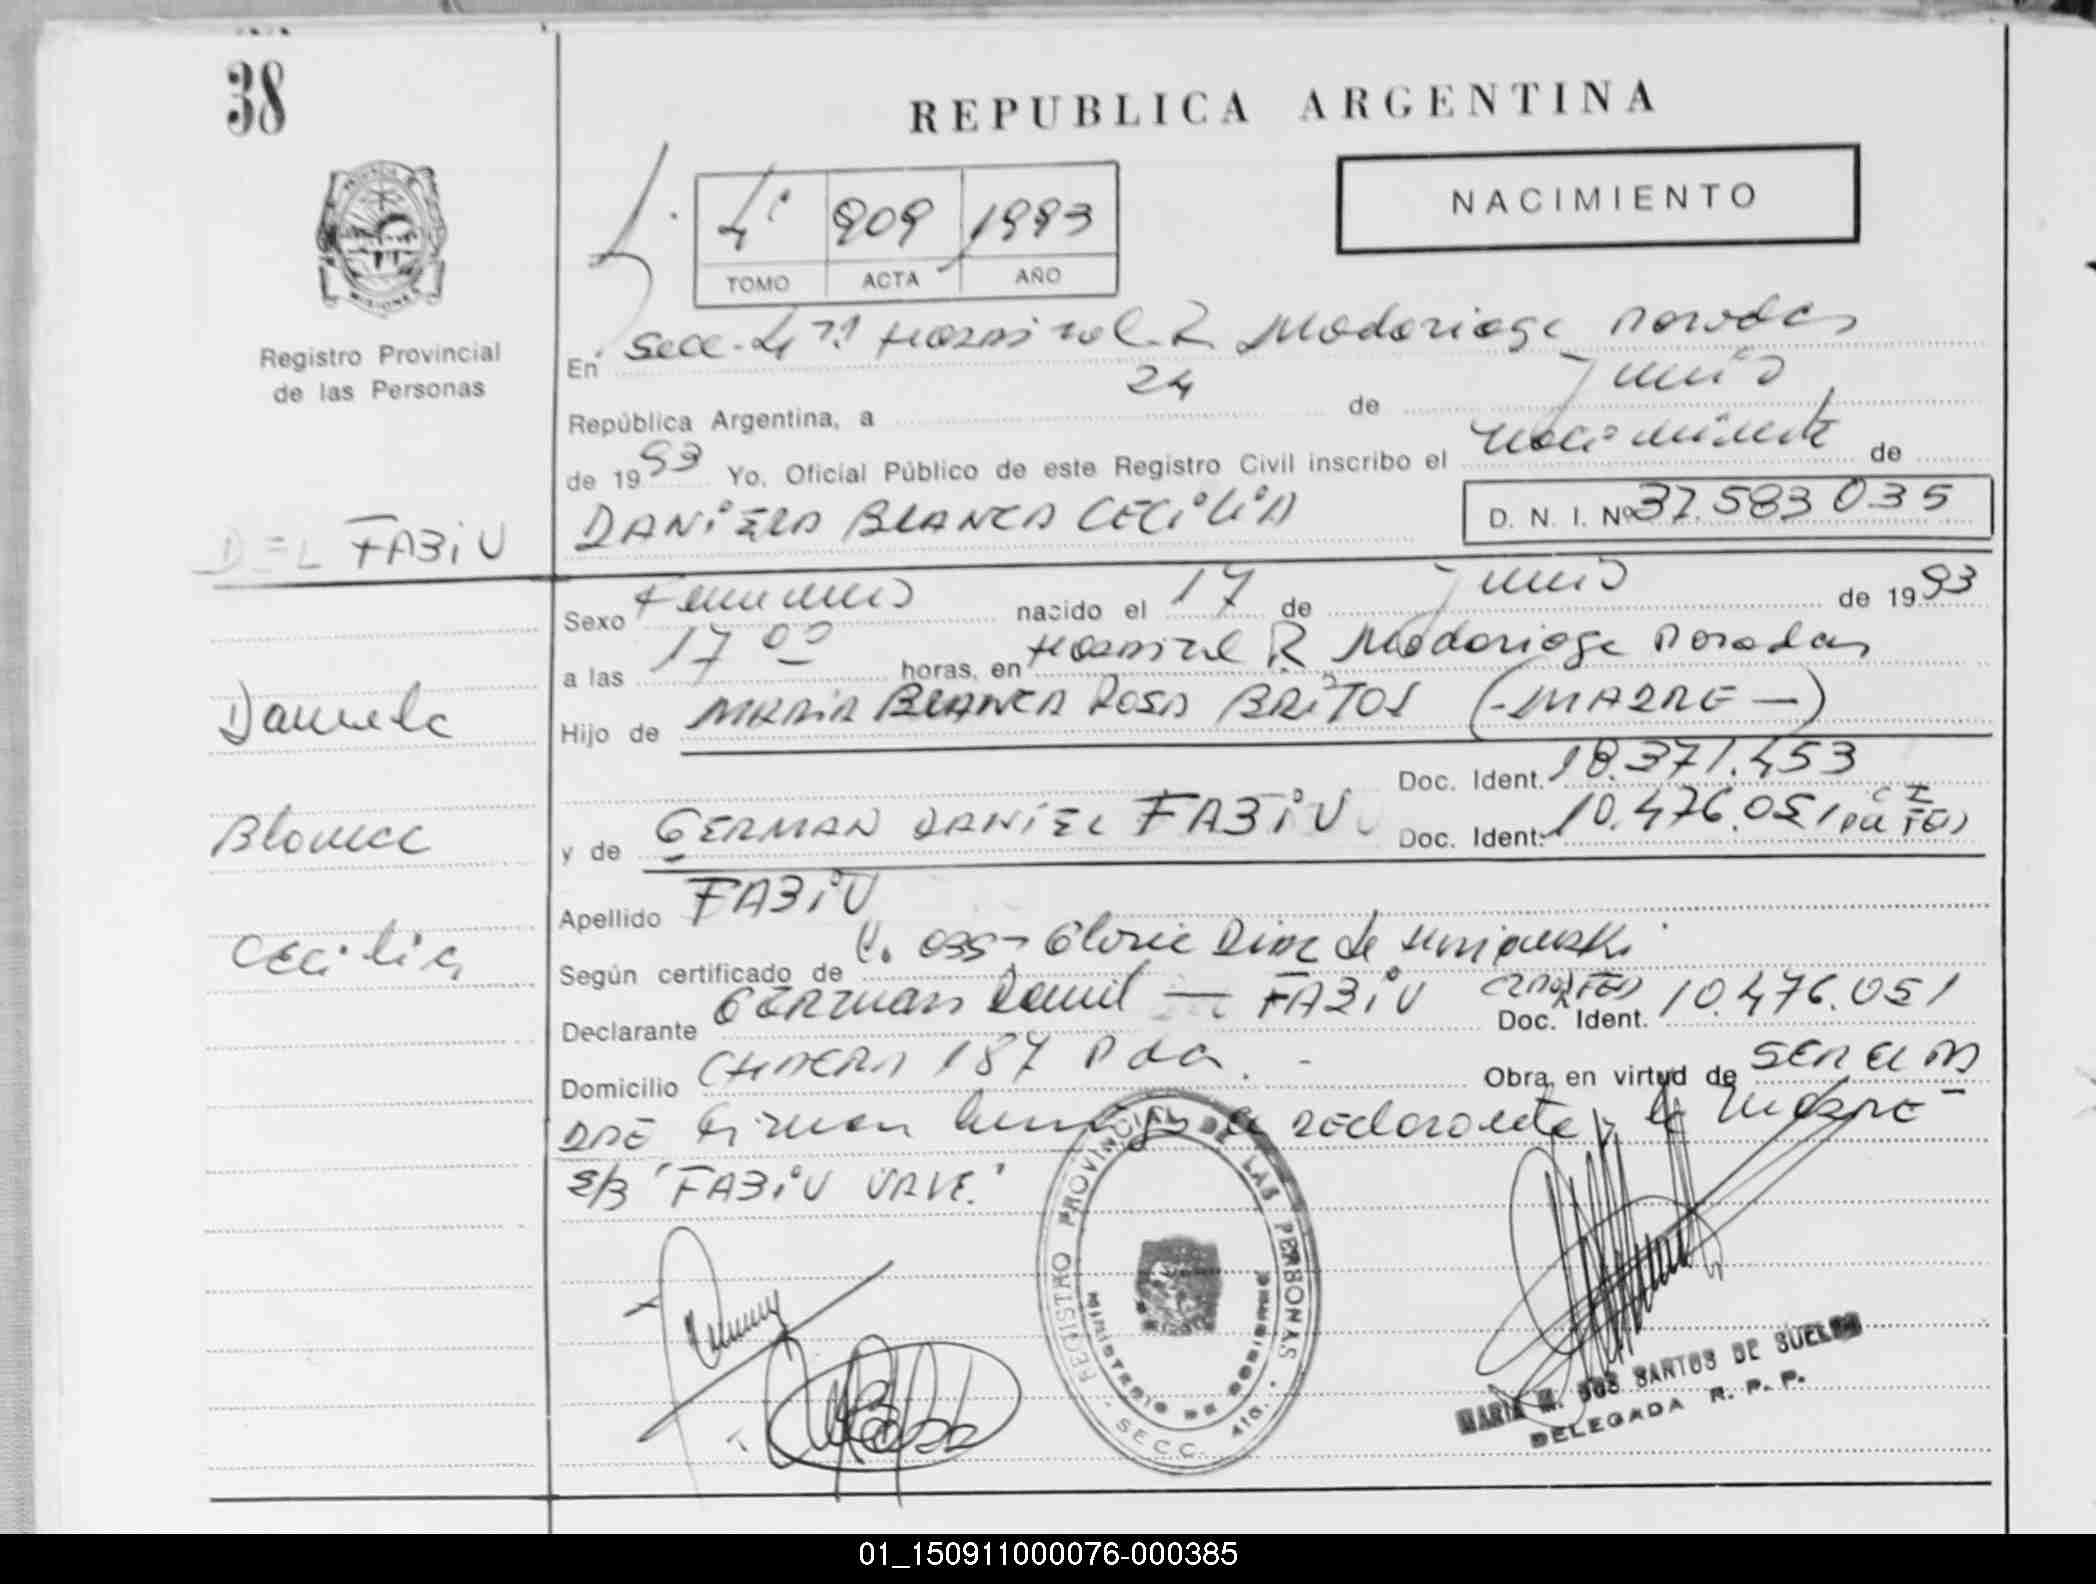 38
REPUBLICA ARGENTINA
NACIMIENTO
4ª 909 1993
TOMO ACTA AÑO
PROVINCIA DE MISIONES
Registro Provincial
de las Personas
En Secc. 4ª Hospital R Madariaga Posadas
República Argentina, a 24 de Junio
de 1993 Yo, Oficial Público de este Registro Civil inscribo el Nacimiento de
DANIELA BLANCA CECILIA D. N. I. Nº 37.583 035
FABIU
Sexo Femenino nacido el 17 de Junio de 1993
a las 17 00 horas, en Hospital R Madariaga Posadas
Daniela
Hijo de MARIA BLANCA ROSA BRITOS (-MADRE-)
Doc. Ident. 18.371.453
Blanca
y de GERMAN DANIEL FABIU Doc. Ident. 10.476.051
Apellido FABIU
Cecilia
Según certificado de Gloria Diaz de
Declarante GERMAN Daniel — FABIU Doc. Ident. 10.476.051
Domicilio 187 Pdas. Obra en virtud de SER EL PA
DRE Firman conmigo el declarante y la MADRE -
S/B "FABIU VALE."
REGISTRO PROVINCIAL DE LAS PERSONAS
MINISTERIO DE GOBIERNO
SECC. 4ta.
MARIA M. DOS SANTOS DE SUELDO
DELEGADA R. P. P.
01_150911000076-000385